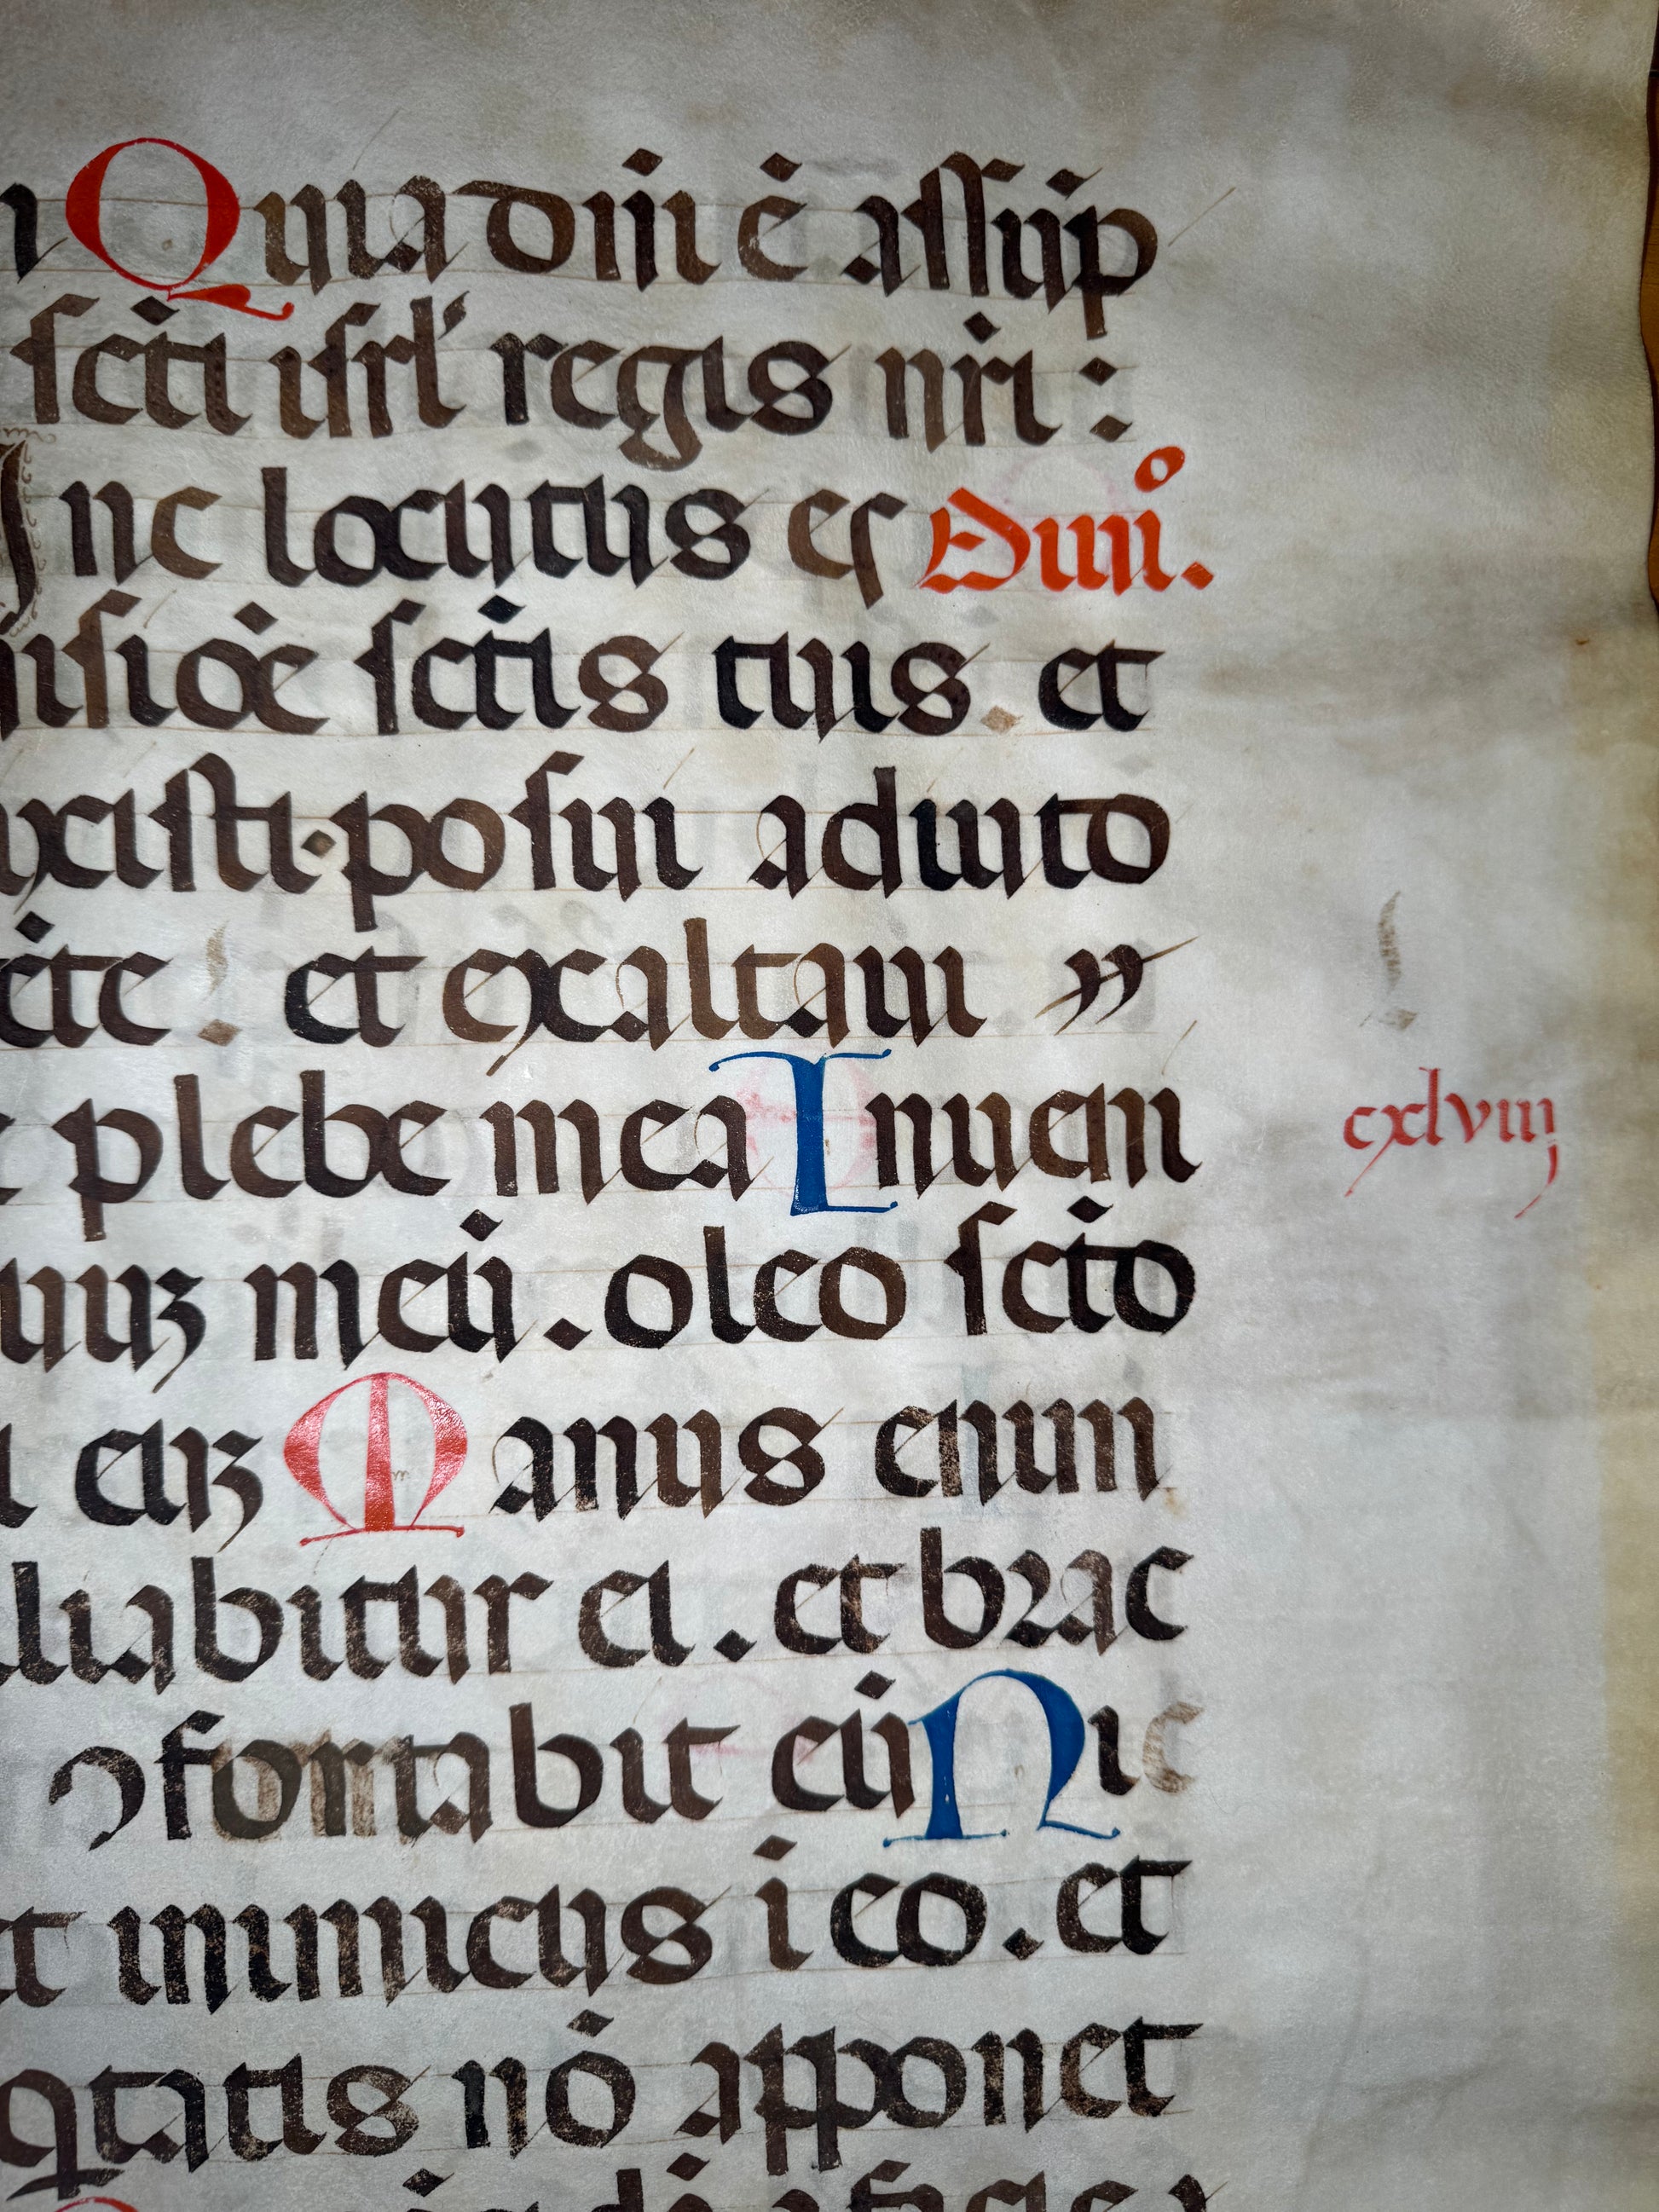 Quia dñi ė assūp
scīti isrl' regis nrī :
Inc locutus es Diuiº.
uisiōe sctīs tuis. et
uxisti·posui adiuto
ėte . et exaltaui
plebe mea Inueni
uuʒ meū . oleo scīto
eiʒ Manus enim
liabitur ei . et brac
ꝯfortabit eū Nic
t inimicus ī eo . et
qtatis nō apponet
cxlviij